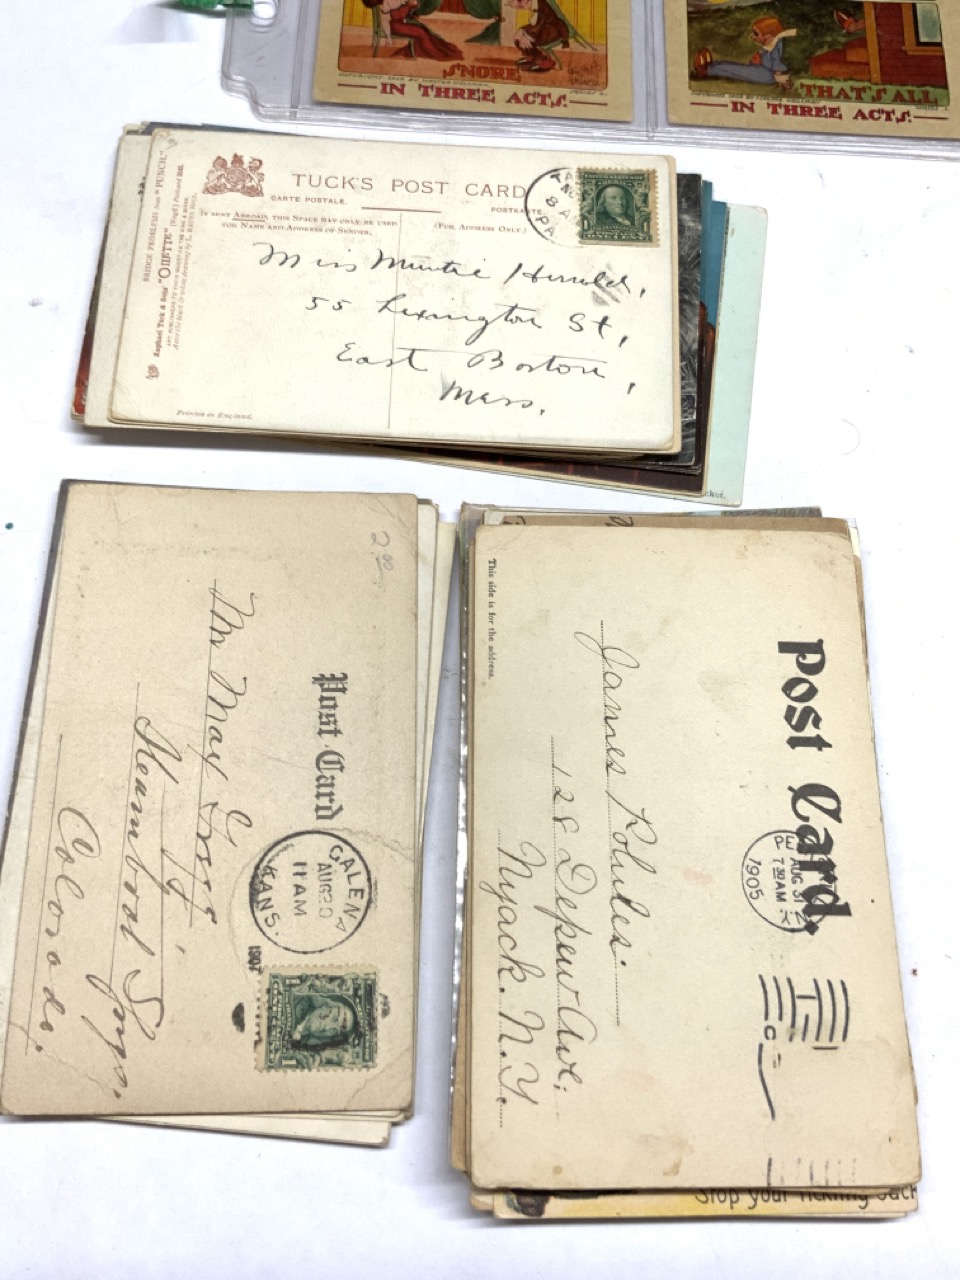 SNORE
IN THREE ACTS.
THAT'S ALL
IN THREE ACTS.
TUCK'S POST CARD
CARTE POSTALE.
POSTKARTE.
IF SENT ABROAD, THIS SPACE MAY ONLY BE USED
FOR NAME AND ADDRESS OF SENDER.
(FOR ADDRESS ONLY.)
8 A
PA
Miss Mintie Herrold,
55 Lexington St,
East Boston,
Mass.
BRIDGE PROBLEMS from "PUNCH."
Raphael Tuck & Sons' "OILETTE" (Regd.) Postcard
Printed in England.
2.00
Post Card
Mr Max Goss
Steamboat Spgs.
Colorado.
GALENA
AUG 20
11 AM
KANS.
1907
Post Card.
This side is for the address.
James Rohules.
128 Depew Ave.
Nyack. N.Y.
PE
AUG 31
7 30 AM
1905
Stop your Tickling Jack